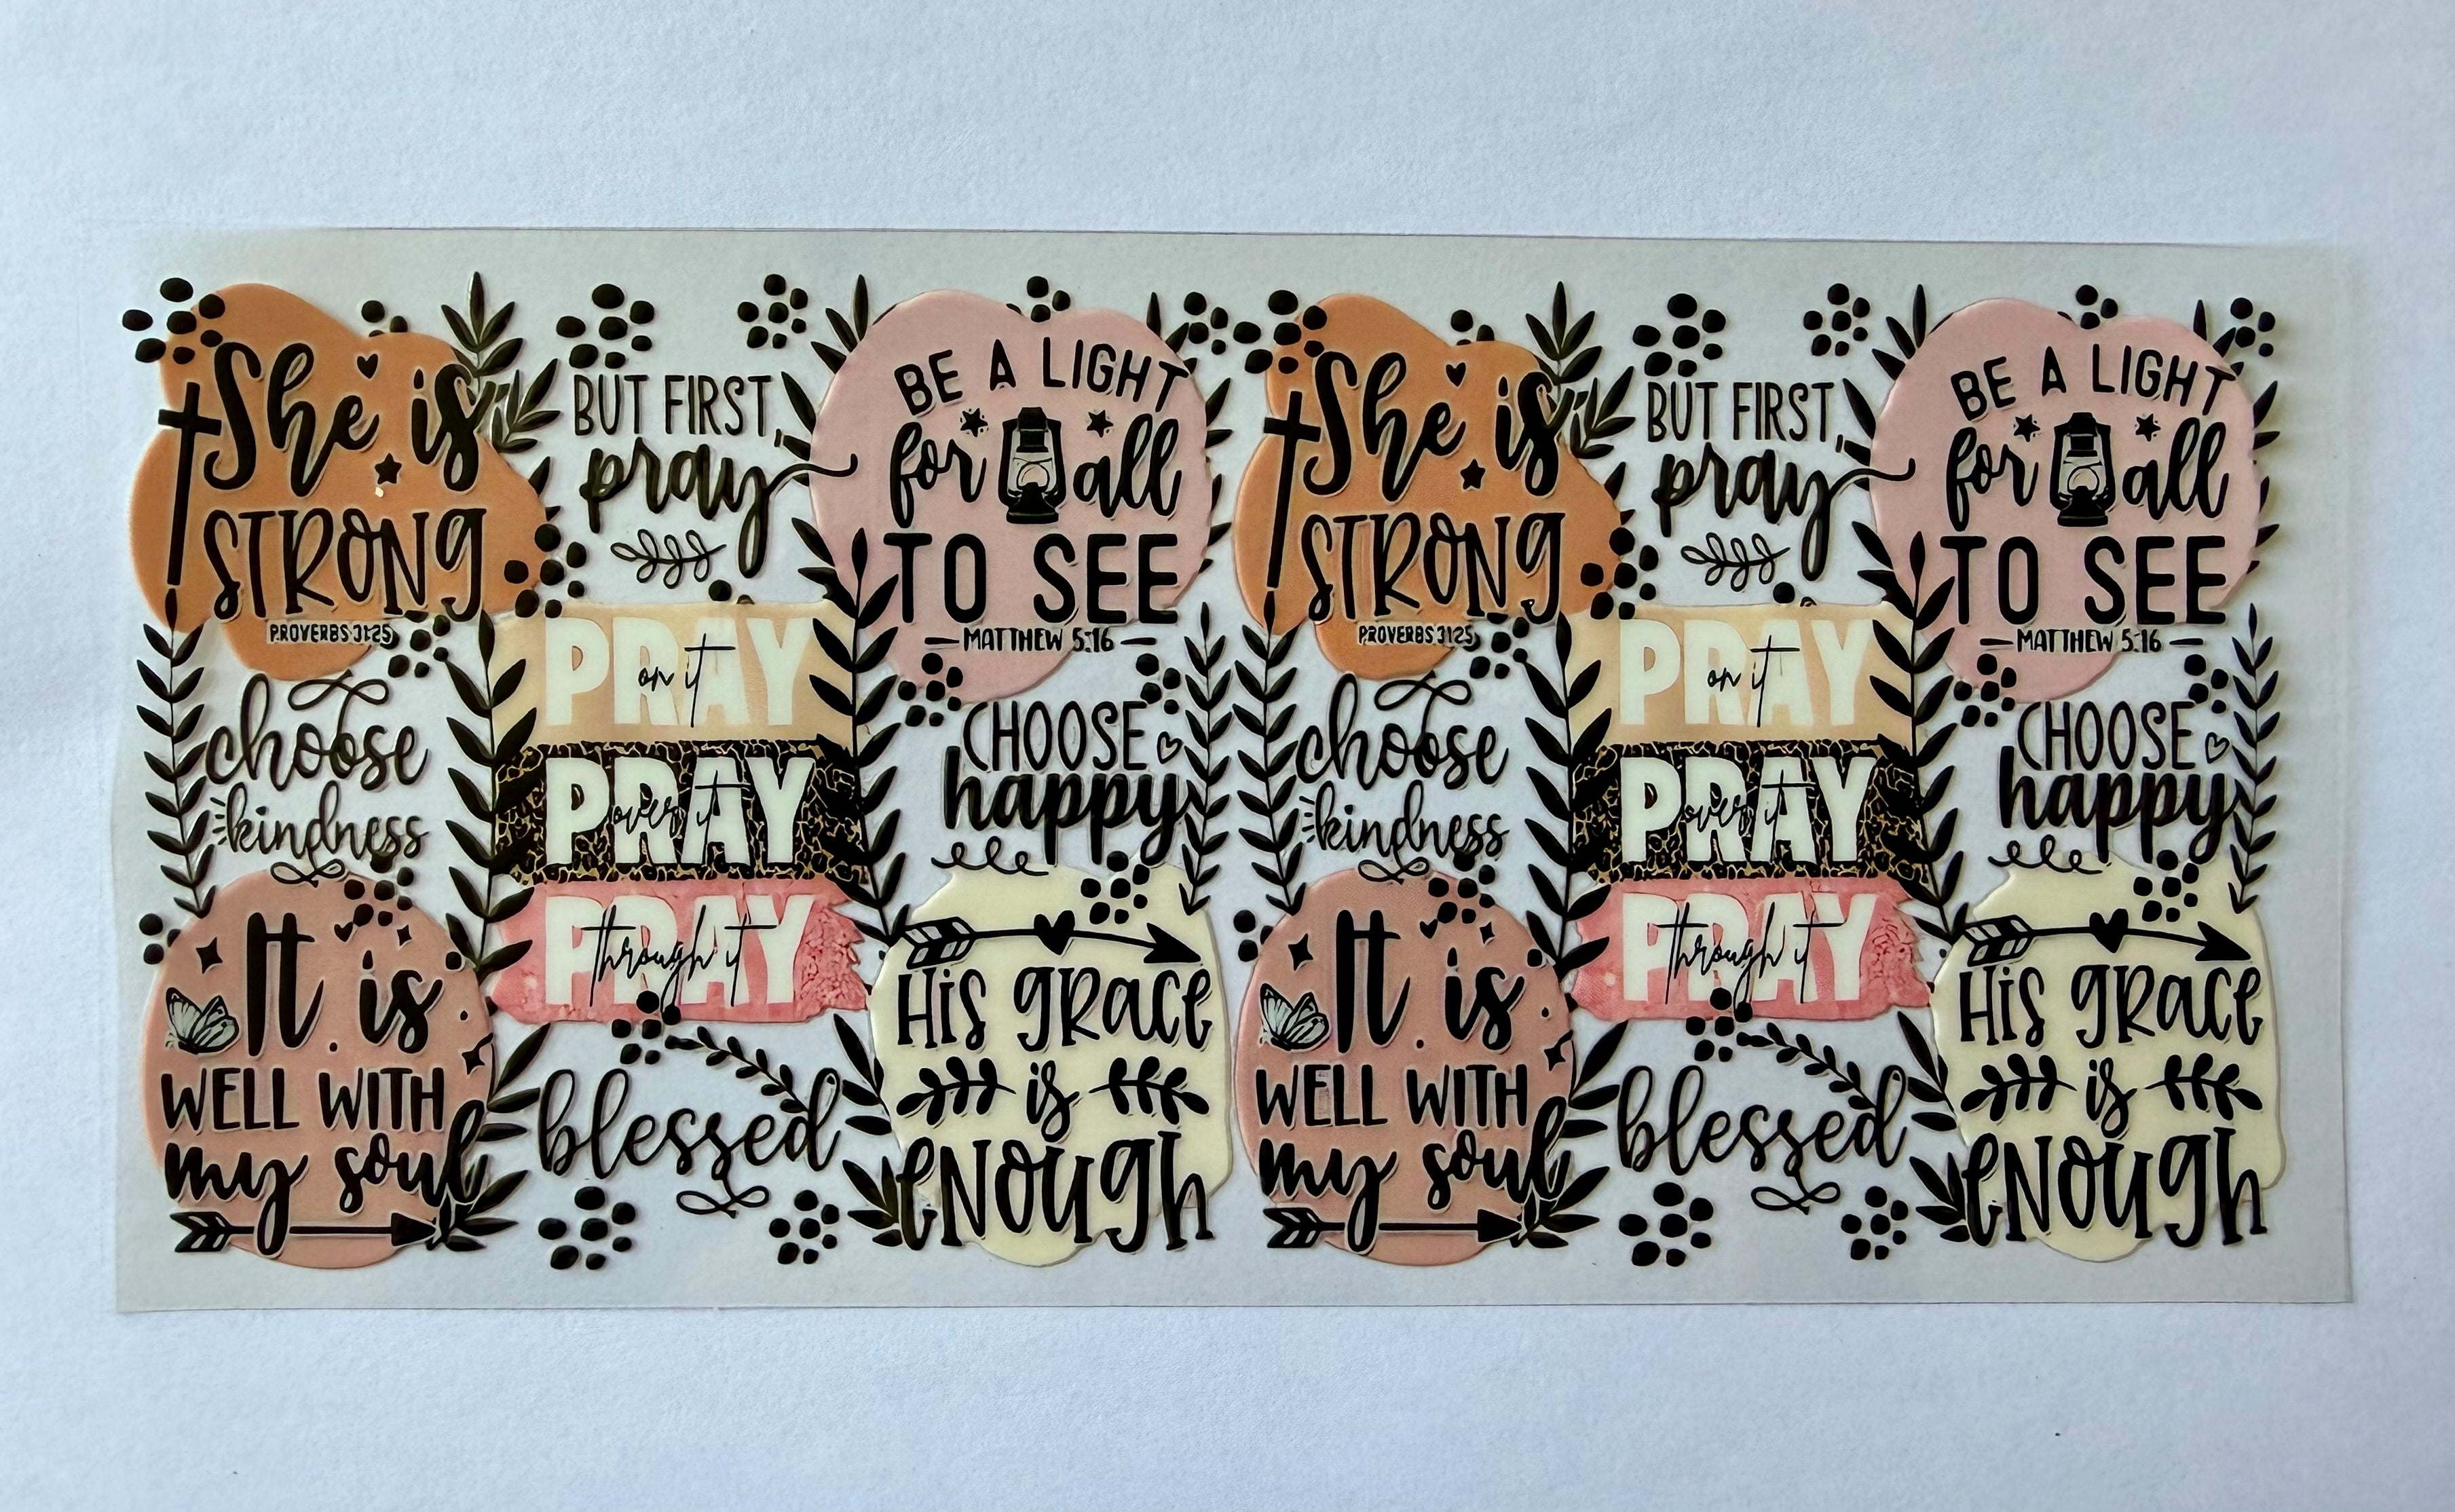 She is
STRONG
PROVERBS 31:25
BUT FIRST,
pray
BE A LIGHT
for all
TO SEE
MATTHEW 5:16
choose
kindness
PRAY
on it
PRAY
over it
PRAY
through it
CHOOSE
happy
It is
WELL WITH
my soul
blessed
His grace
is
enough
She is
STRONG
PROVERBS 31:25
BUT FIRST,
pray
BE A LIGHT
for all
TO SEE
MATTHEW 5:16
choose
kindness
PRAY
on it
PRAY
over it
PRAY
through it
CHOOSE
happy
It is
WELL WITH
my soul
blessed
His grace
is
enough